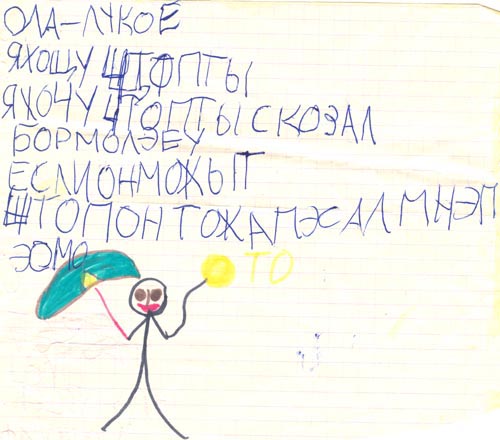 ОЛА-ЛУКОЕ
ЯХОЩУ ШТОПТЫ
ЯХОЧУ ШТОПТЫ СКОЗАЛ
БОРМОЛЭЕУ
ЕСЛИОНМОЖЫТ
ШТОПОНТОЖАПЭСАЛМНЭП
ЭОМО
ТО